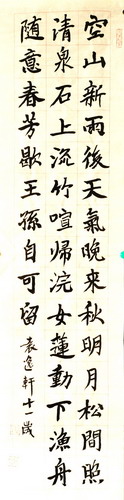 空山新雨後天氣晚来秋明月松間照
清泉石上流竹喧帰浣女蓮動下漁舟
随意春芳歇王孫自可留
袁逸軒十一歲